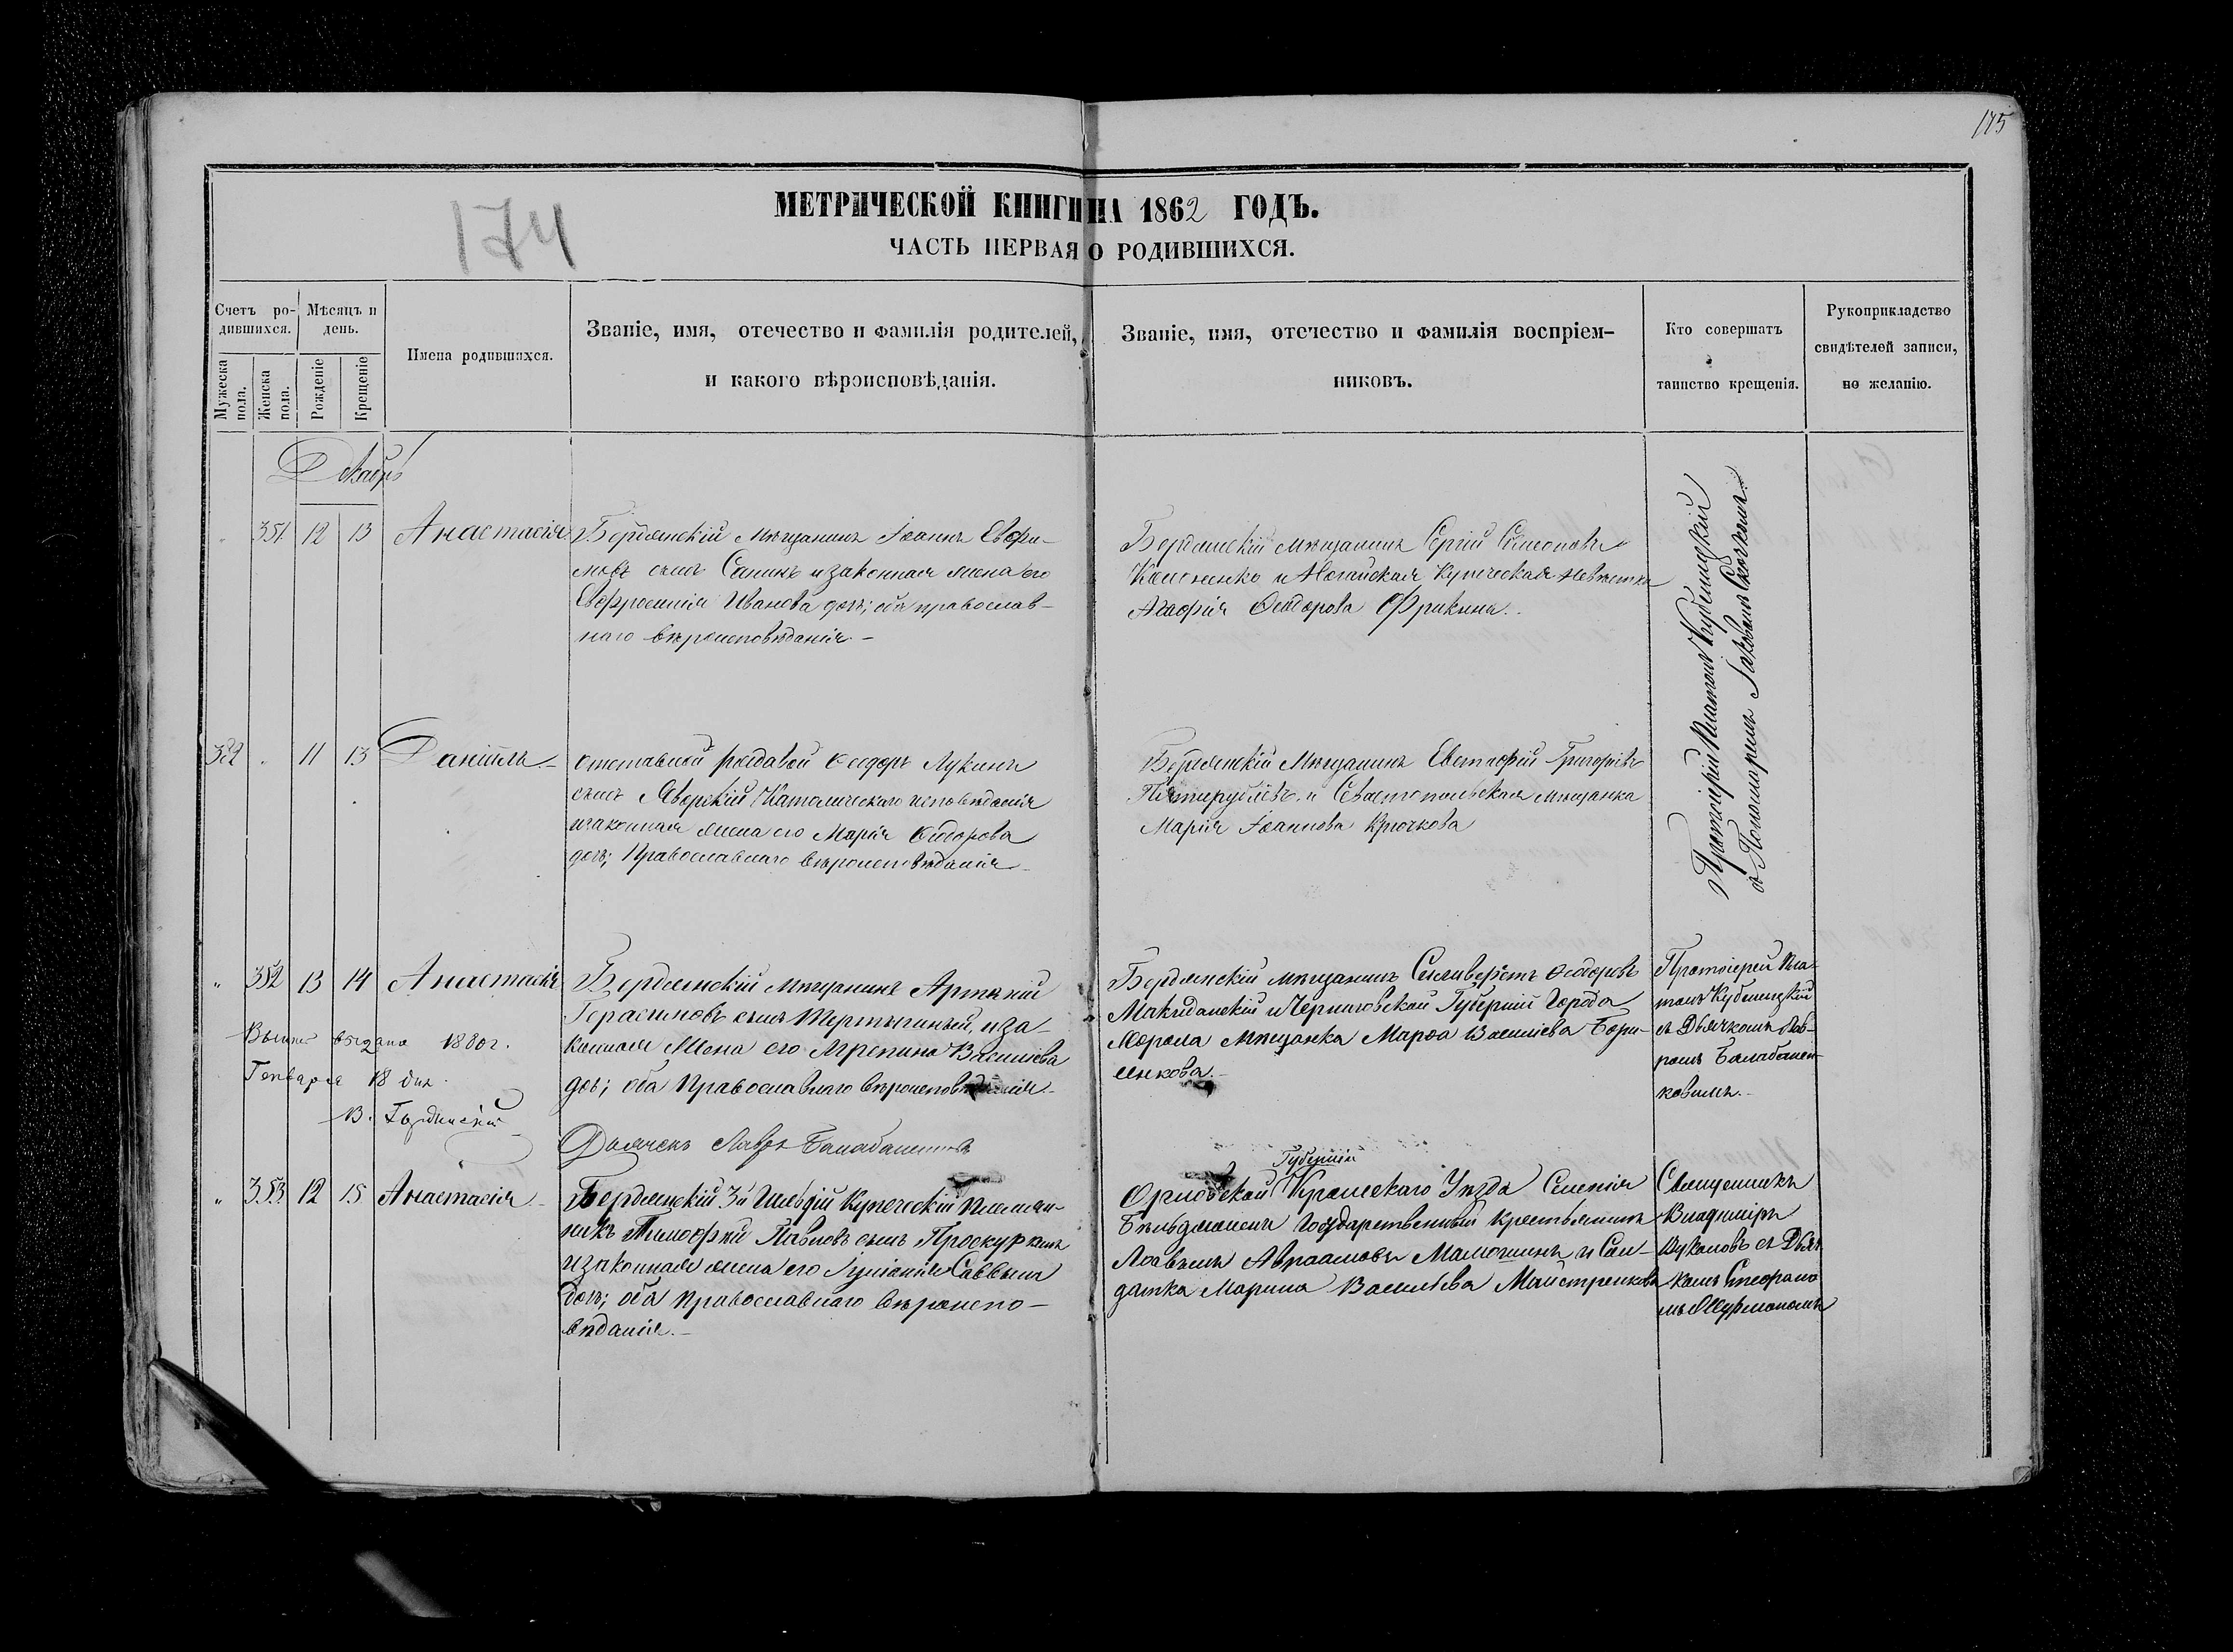 175
174
МЕТРИЧЕСКОЙ КНИГИ НА 1862 ГОДЪ.
ЧАСТЬ ПЕРВАЯ О РОДИВШИХСЯ.
Счетъ ро-
дившихся.
Мѣсяцъ и
день.
Мужеска
пола.
Женска
пола.
Рожденіе
Крещеніе
Имена родившихся.
Званіе, имя, отечество и фамилія родителей,
и какого вѣроисповѣданія.
Званіе, имя, отечество и фамилія воспріем-
никовъ.
Кто совершатъ
таинство крещенія.
Рукоприкладство
свидѣтелей записи,
по желанію.
Декабрь
351. 12 13 Анастасія
Бердянскій мѣщанинъ Іоаннъ Евфи-
мовъ сынъ Санинъ и законная жена его
Евфросинія Иванова дочь; оба православ-
наго вѣроисповѣданія.-
Бердянскій мѣщанинъ Сергій Симеоновъ
и Ногайская купеческая невѣстка
Агафія Ѳеодорова
Протоіерей Платонъ Кубенецкій
съ Пономаремъ Іаковомъ
382 11 13 Даніилъ.-
отставной рядовой Ѳеодоръ Лукинъ
сынъ Яворскій Католическаго исповѣданія
и законная жена его Марія Ѳеодорова
дочь; Православнаго вѣроисповѣданія
Бердянскій Мѣщанинъ Евстафій Григорьевъ
Пятирублевъ и Севастопольская мѣщанка
Марія Іоаннова Крючкова
" 352 13 14 Анастасія
Бердянскій мѣщанинъ Артемій
Герасимовъ сынъ и за-
конная Жена его Агрепина Васильева
дочь; оба Православнаго вѣроисповѣданія.-
Бердянскій мѣщанинъ Селиверстъ Ѳеодоровъ
и Черниговской Губерніи Города
мѣщанка Марѳа Васильева Бори-
сенкова.-
Протоіерей Пла-
тонъ Кубенецкій
съ Дьячкомъ Лав-
ромъ Балабанен-
ковымъ.-
выдано 1880 г.
Генваря 18 дня.
В.
Дьячекъ Лавръ Балабаненковъ
" 353 12 15 Анастасія.-
Бердянскій 3й Гильдіи Купеческій племян-
никъ Тимофей Павловъ сынъ Проскуркинъ
и законная жена его Саввина
дочь; оба Православнаго вѣроиспо-
вѣданія.-
Губерніи
Орловской Кромскаго Уѣзда Селенія
Государственный крестьянинъ
Авраамовъ и Сол-
датка Марина Васильева Майстренкова
Священникъ
Владиміръ
Вуколовъ съ Дьяч-
комъ Стефано-
мъ